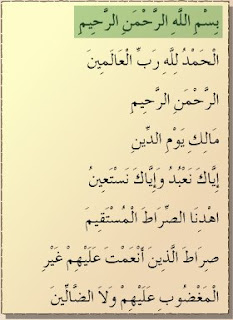 بِسْمِ اللَّهِ الرَّحْمَنِ الرَّحِيمِ
الْحَمْدُ لِلَّهِ رَبِّ الْعَالَمِينَ
الرَّحْمَنِ الرَّحِيمِ
مَالِكِ يَوْمِ الدِّينِ
إِيَّاكَ نَعْبُدُ وَإِيَّاكَ نَسْتَعِينُ
اهْدِنَا الصِّرَاطَ الْمُسْتَقِيمَ
صِرَاطَ الَّذِينَ أَنْعَمْتَ عَلَيْهِمْ غَيْرِ
الْمَغْضُوبِ عَلَيْهِمْ وَلَا الضَّالِّينَ